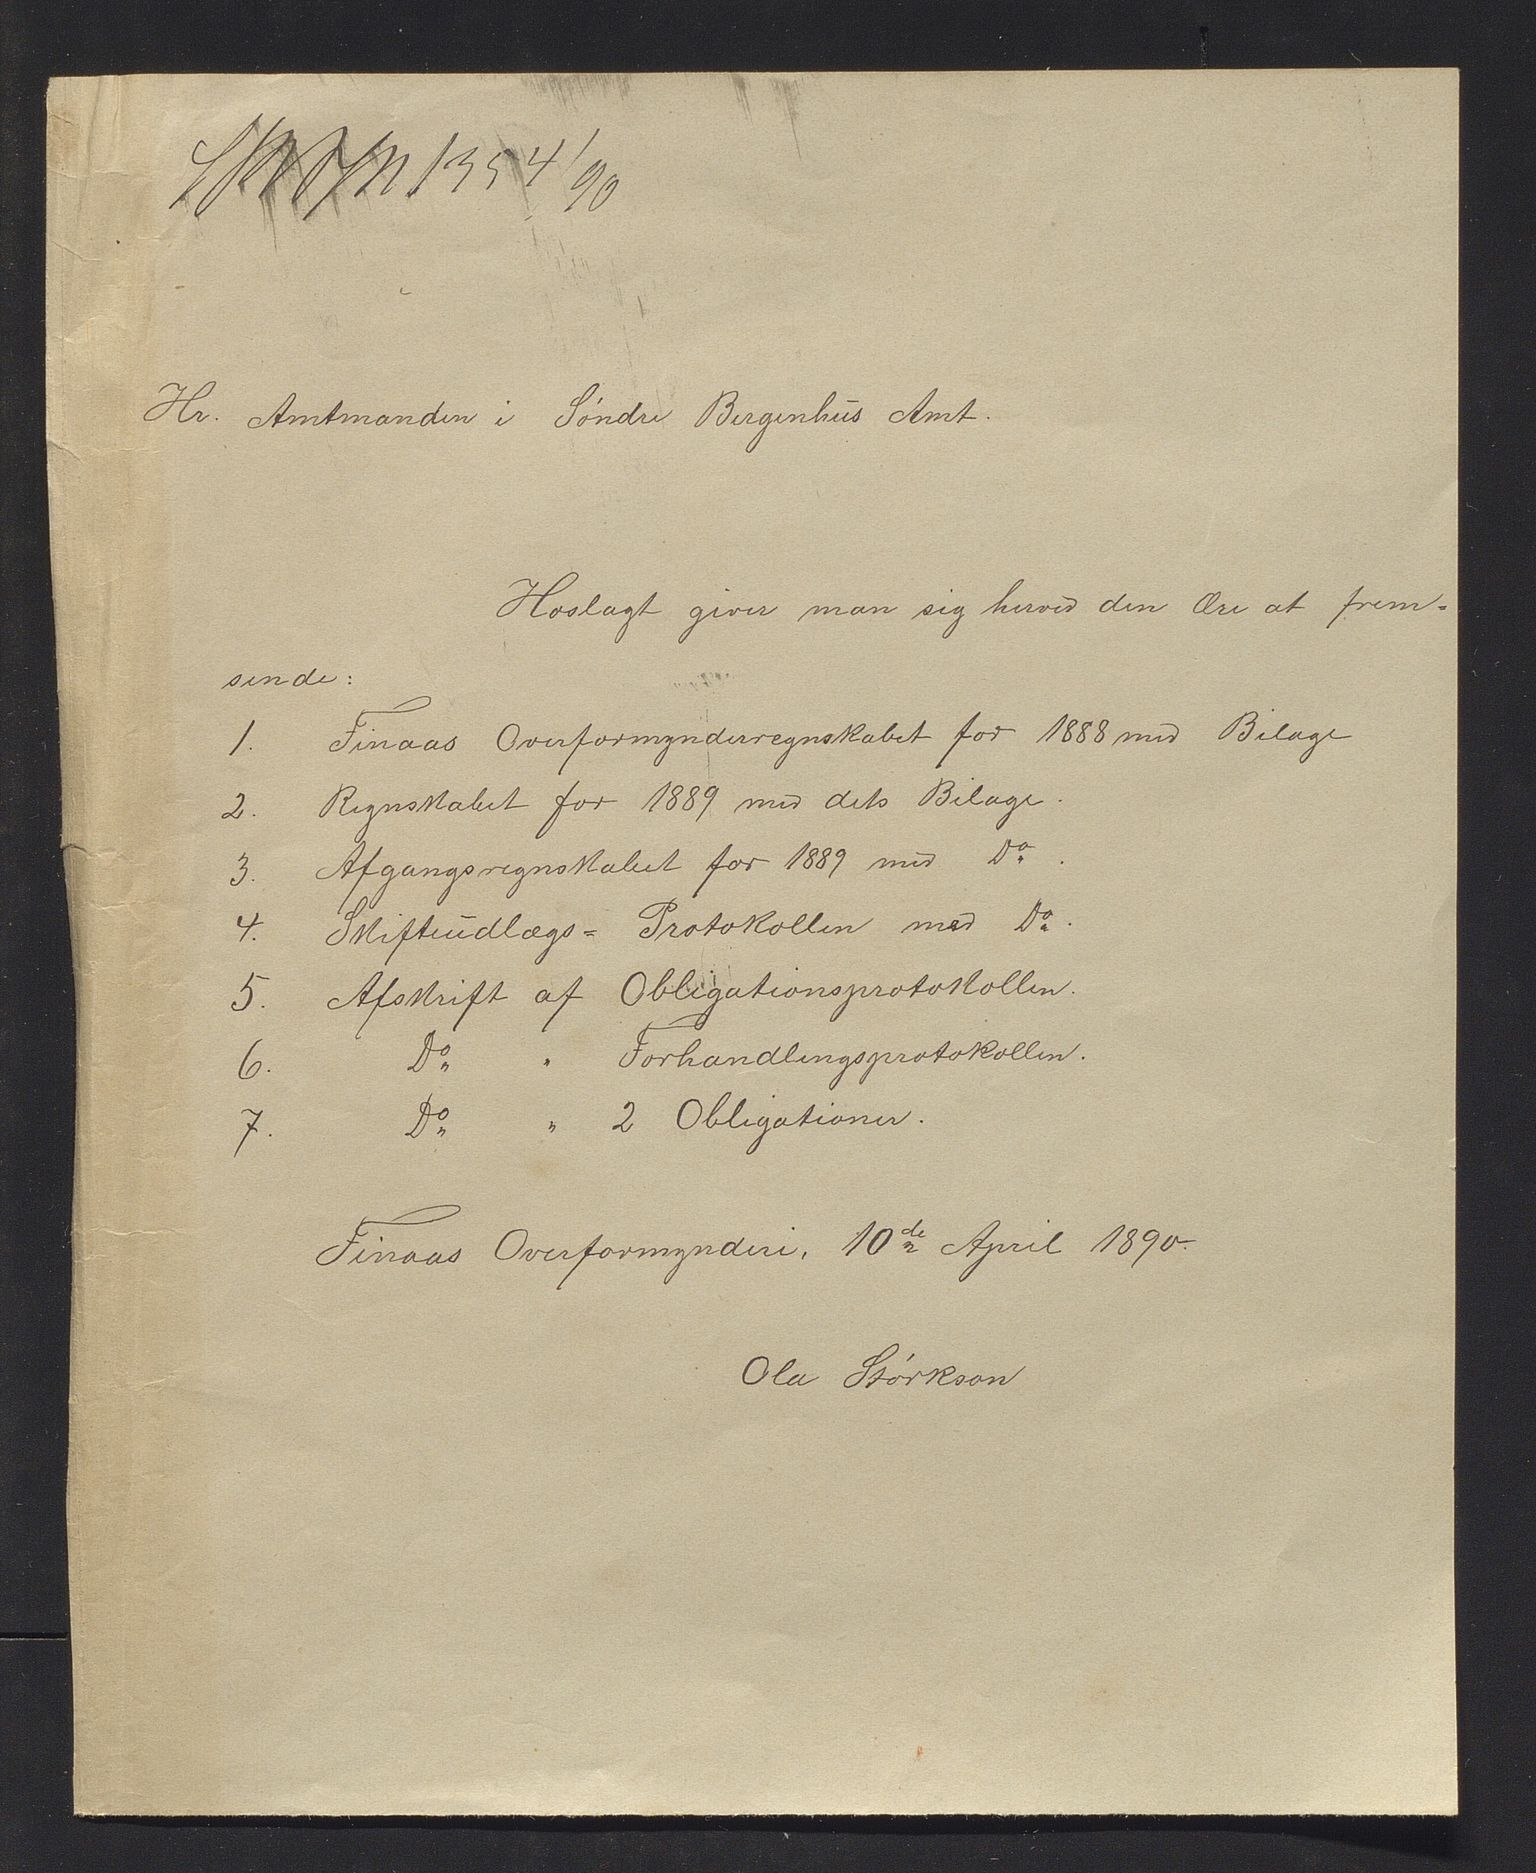 1354/90
Hr. Amtmanden i Söndre Bergenhus Amt.
Hoslagt giver man sig herved den Ære at frem-
sende:
1. Finaas Overformynderregnskabet for 1888 med Bilage
2. Regnskabet for 1889 med dets Bilage.
3. Afgangsregnskabet for 1889 med Do.
4. Skifteudlægs- Protokollen med Do.
5. Afskrift af Obligationsprotokollen.
6. Do " Forhandlingsprotokollen.
7. Do " 2 Obligationer.
Finaas Overformynderi, 10de April 1890.
Ola Störkson